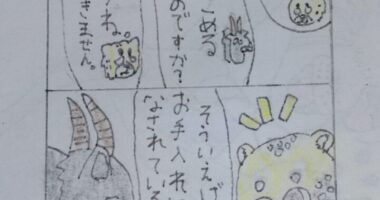 そういえば
お手入れい
なされている
こめる
のですか？
ね。
きません。